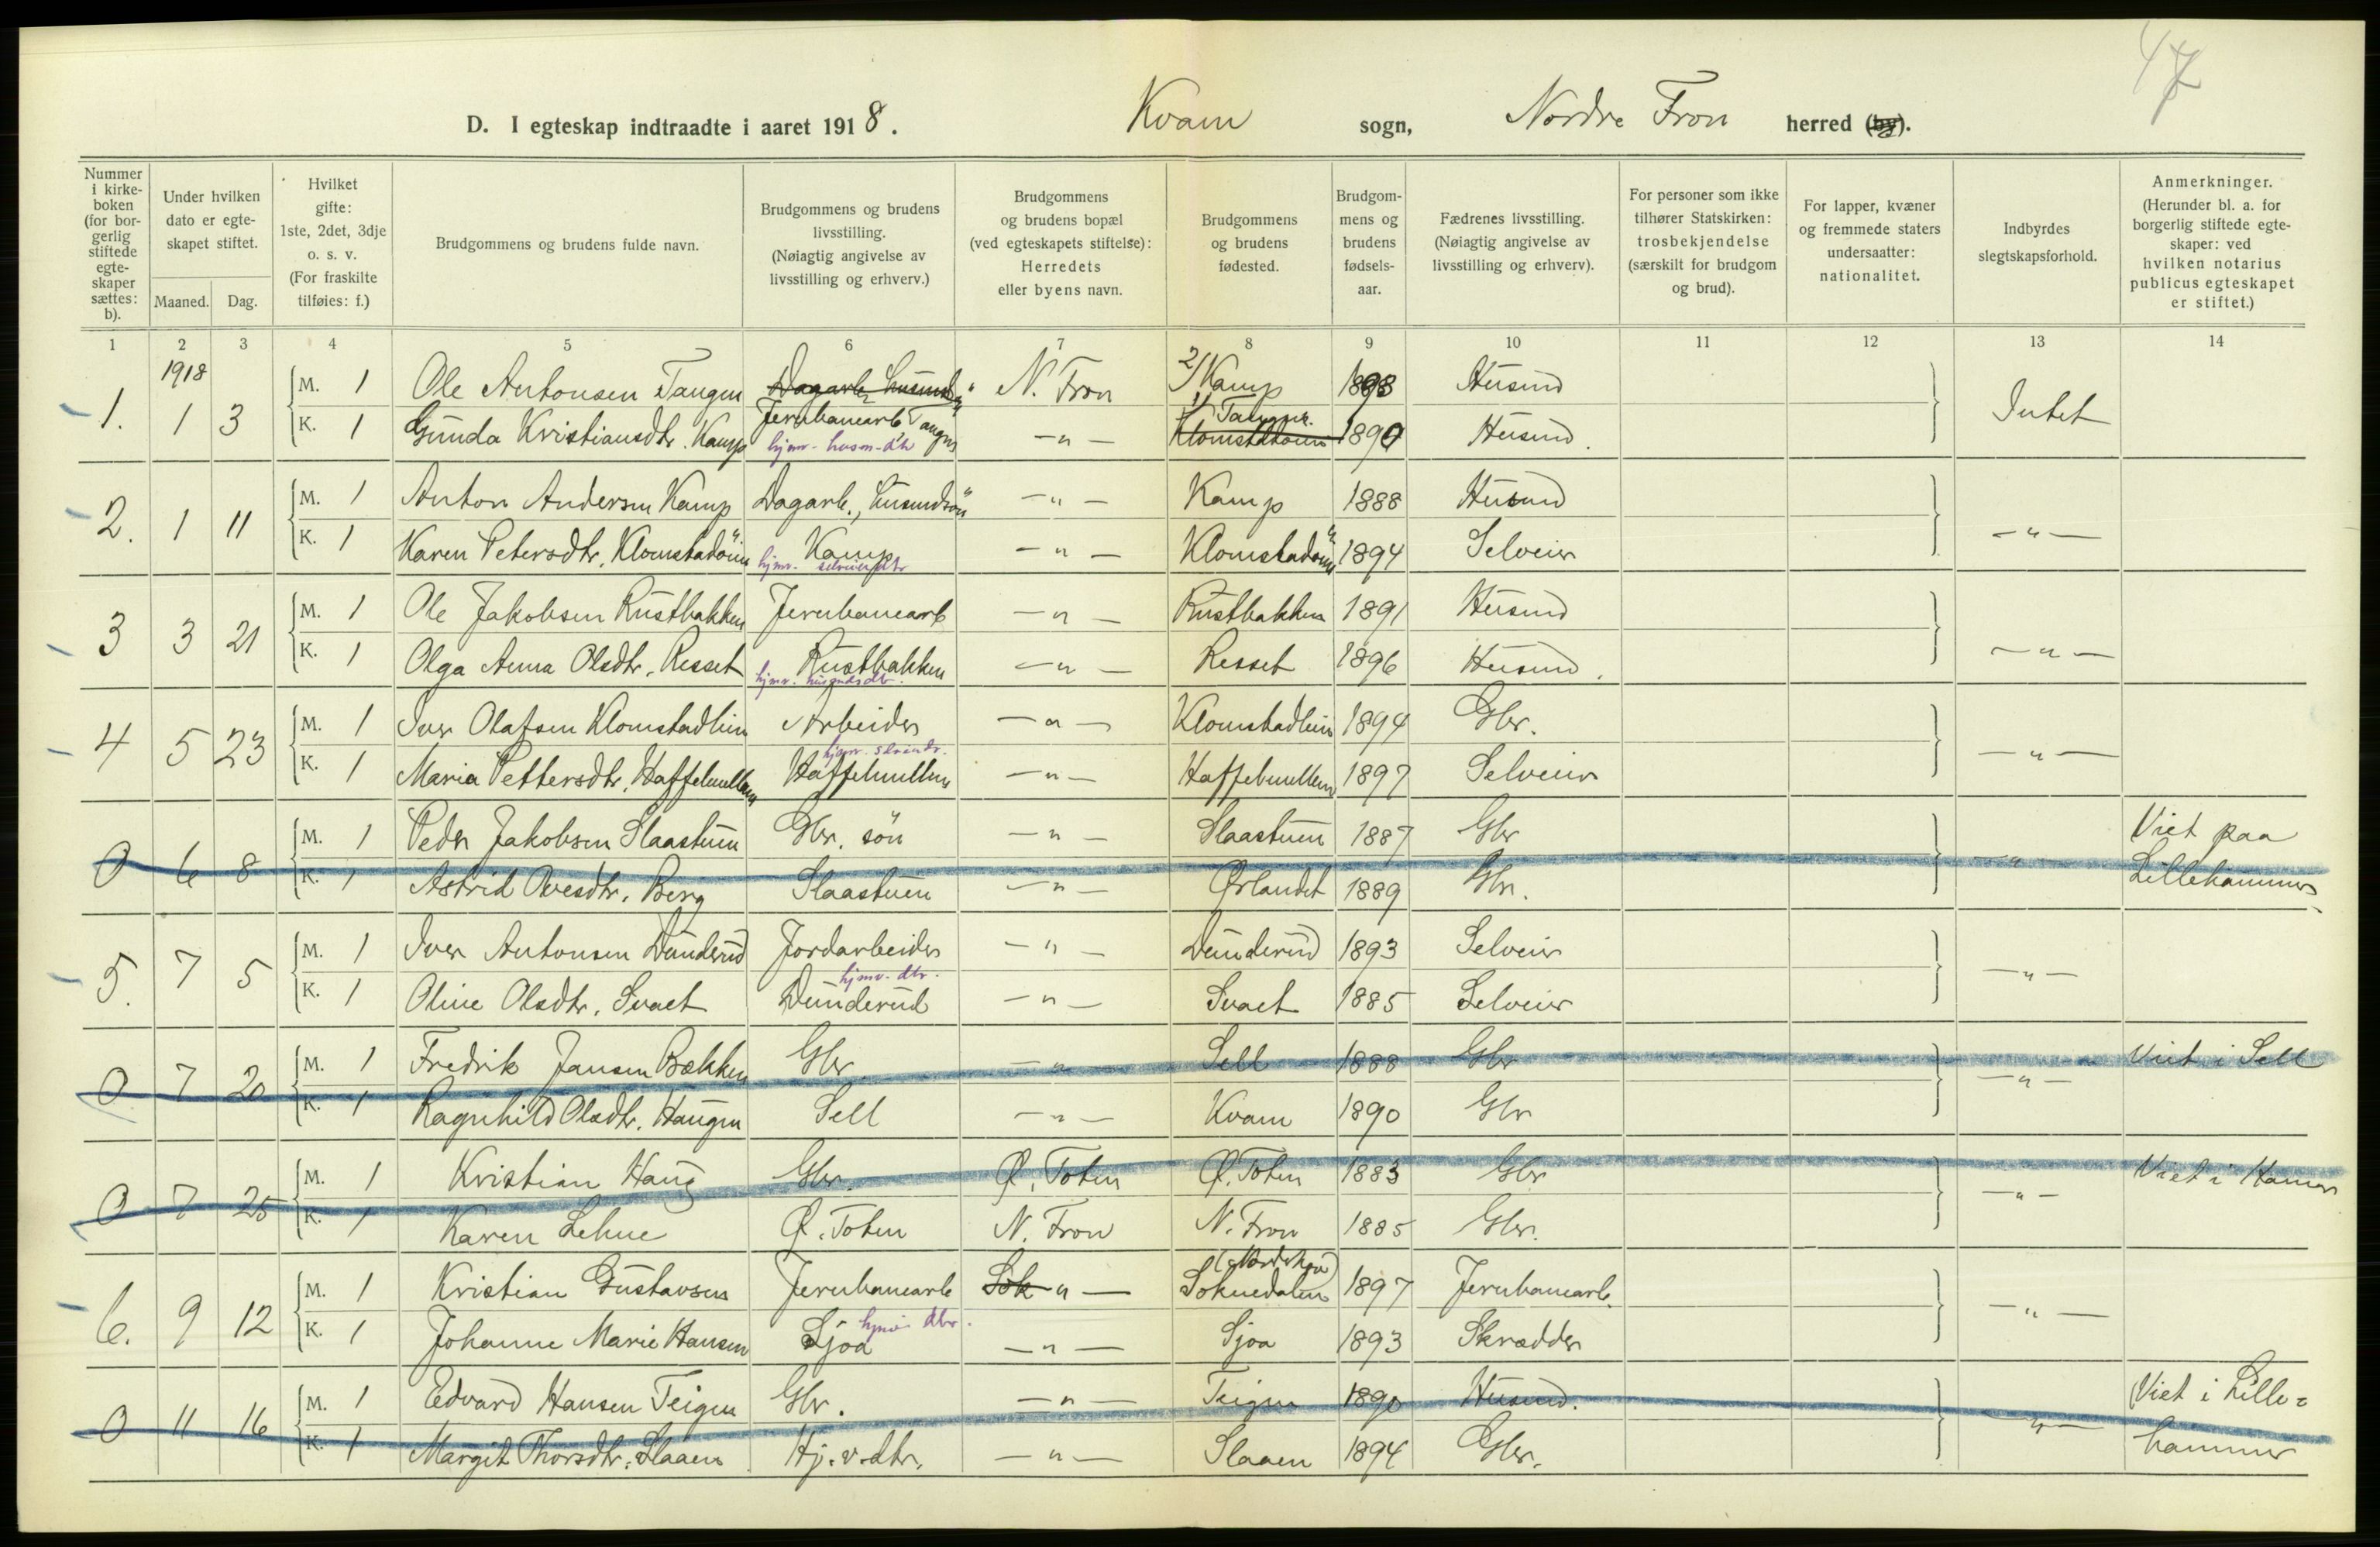 47
D. I egteskap indtraadte i aaret 1918. Kvam sogn, Nordre Fron herred (by).
Nummer i kirkeboken (for borgerlig stiftede egteskaper sættes: b).
Under hvilken dato er egteskapet stiftet.
Maaned. Dag.
Hvilket gifte: 1ste, 2det, 3dje o. s. v. (For fraskilte tilføies: f.)
Brudgommens og brudens fulde navn.
Brudgommens og brudens livsstilling. (Nøiagtig angivelse av livsstilling og erhverv.)
Brudgommens og brudens bopæl (ved egteskapets stiftelse): Herredets eller byens navn.
Brudgommens og brudens fødested.
Brudgommens og brudens fødselsaar.
Fædrenes livsstilling. (Nøiagtig angivelse av livsstilling og erhverv).
For personer som ikke tilhører Statskirken: trosbekjendelse (særskilt for brudgom og brud).
For lapper, kvæner og fremmede staters undersaatter: nationalitet.
Indbyrdes slegtskapsforhold.
Anmerkninger. (Herunder bl. a. for borgerlig stiftede egteskaper: ved hvilken notarius publicus egteskapet er stiftet.)
1 2 3 4 5 6 7 8 9 10 11 12 13 14
1918
1. 1 3 M. 1 Ole Antonsen Tangen Dagarb. Jernbanearb. Tangen N. Fron 2/ Kamp 1893 Husmd Intet
K. 1 Gunda Kristiansdtr. Kamp hjmv. husm-dtr —"— 1/ Tangen Klomstadøum 1890 Husmd.
2. 1 11 M. 1 Anton Andersen Kamp Dagarb., husmdsøn —"— Kamp 1888 Husmd —"—
K. 1 Karen Petersdtr. Klomstadøin Kamp hjmv. selveierdtr —"— Klomstadøin 1894 Selveier
3 3 21 M. 1 Ole Jakobsen Rustbakken Jernbanearb —"— Rustbakken 1891 Husmd —"—
K. 1 Olga Anna Olsdtr. Resset Rustbakken hjmv. husmdsdtr. —"— Resset 1896 Husmd.
4 5 23 M. 1 Iver Olafsen Klomstadlien Arbeider —"— Klomstadlien 1894 Gbr. —"—
K. 1 Maria Pettersdtr. Haffelmellem hjmv. Haffelmellem —"— Haffelmellem 1897 Selveier
0 6 8 M. 1 Peder Jakobsen Slaastuen Gbr. søn —"— Slaastuen 1887 Gbr —"— Viet paa
K. 1 Astrid Ovesdtr. Berg Slaastuen —"— Ørlandet 1889 Gbr. Lillehammer
5. 7 5 M. 1 Iver Antonsen Dunderud Jordarbeider —"— Dunderud 1893 Selveier —"—
K. 1 Oline Olsdtr. Svaet hjmv. dtr. Dunderud —"— Svaet 1885 Selveier
0 7 20 M. 1 Fredrik Jansen Bækken Gbr —"— Sell 1888 Gbr —"— Viet i Sell
K. 1 Ragnhild Olsdtr. Haugen Sell —"— Kvam 1890 Gbr
0 7 25 M. 1 Kristian Haug Gbr. Ø. Toten Ø. Toten 1883 Gbr —"— Viet i Hamar
K. 1 Karen Lehne Ø. Toten N. Fron N. Fron 1885 Gbr.
6. 9 12 M. 1 Kristian Gustavsen Jernbanearb Sok —"— Soknedalen 1897 Jernbanearb. —"—
K. 1 Johanne Marie Hansen hjmv. dtr. Sjoa —"— Sjoa 1893 Skrædder
0 11 16 M. 1 Edvard Hansen Teigen Gbr. —"— Teigen 1890 Husmd. —"— Viet i Lille=
K. 1 Margit Thorsdtr. Slaaen Hj.v.dtr. —"— Slaaen 1894 Gbr. hammer